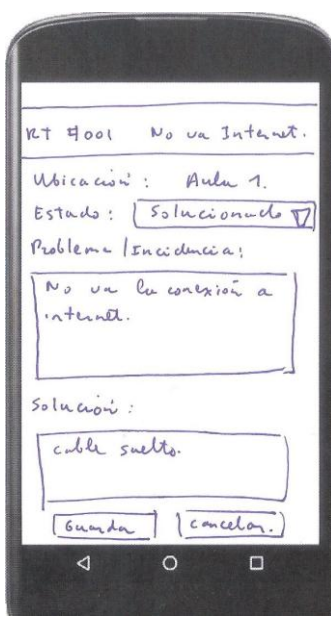 RT #001 No va Internet.
Ubicación: Aula 1.
Estado: Solucionado
Problema/Incidencia:
No va la conexión a
internet.
Solución:
cable suelto.
Guardar Cancelar.